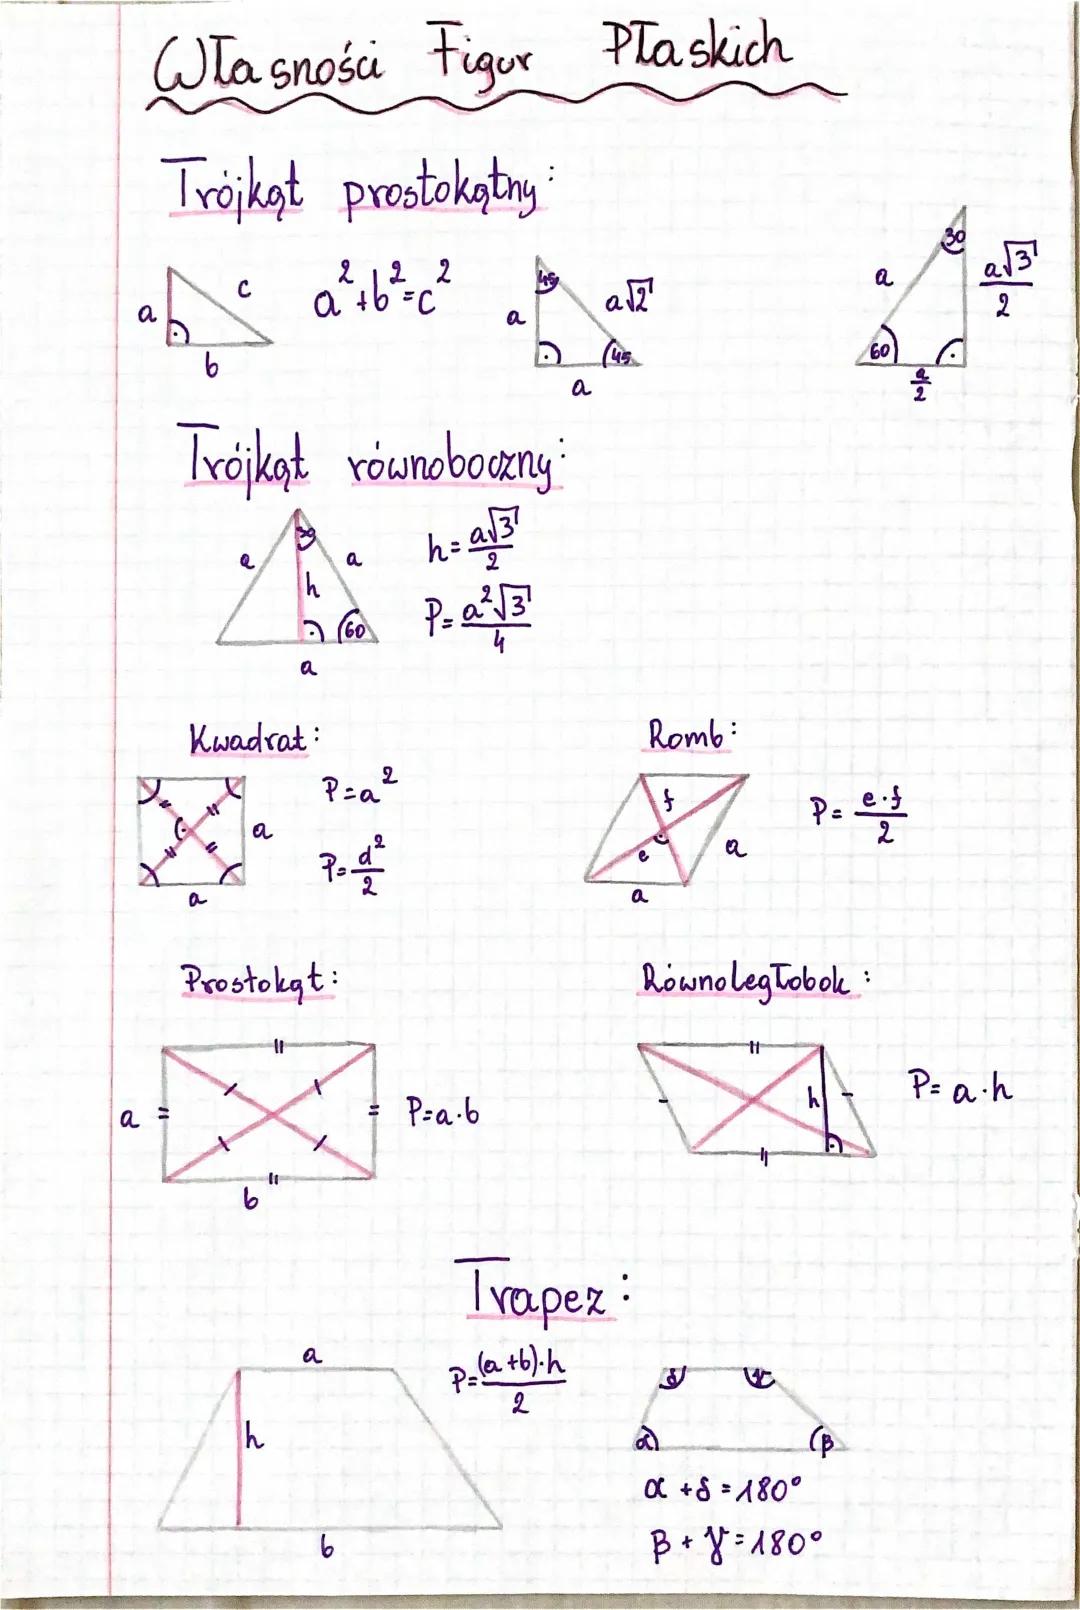 Własności Figur Płaskich
Trójkąt prostokątny:
a c b
a²+b²=c²
a 45 a√2 45 a
30 a a√3/2 60 a/2
Trójkąt równoboczny:
a 30 a h 60 a
h = a√3/2
P = a²√3/4
Kwadrat:
a a
P=a²
P=d²/2
Romb:
f e a a
P = e·f/2
Prostokąt:
a b
P=a·b
Równoległobok:
h
P= a·h
Trapez:
a h b
P=(a+b)·h/2
δ γ α β
α + δ = 180°
β + γ = 180°